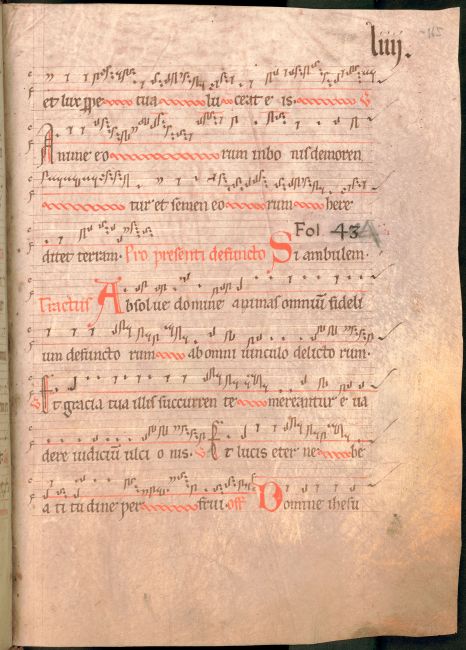 liiij. 165
et lux ꝑpe tua lu ceat e is. V
Anime eo rum in bo nis demoren
tur et semen eo rum here
ditet terram. Pro presenti defuncto Si ambulem.
Fol 43
Tractus Absolue domine animas omniū fideli
um defuncto rum ab omni uinculo delicto rum.
V Et gracia tua illis succurren te mereantur e ua
dere iudiciū ulci o nis. V Et lucis eter ne be
a ti tu dine per frui. off Domine ihesu